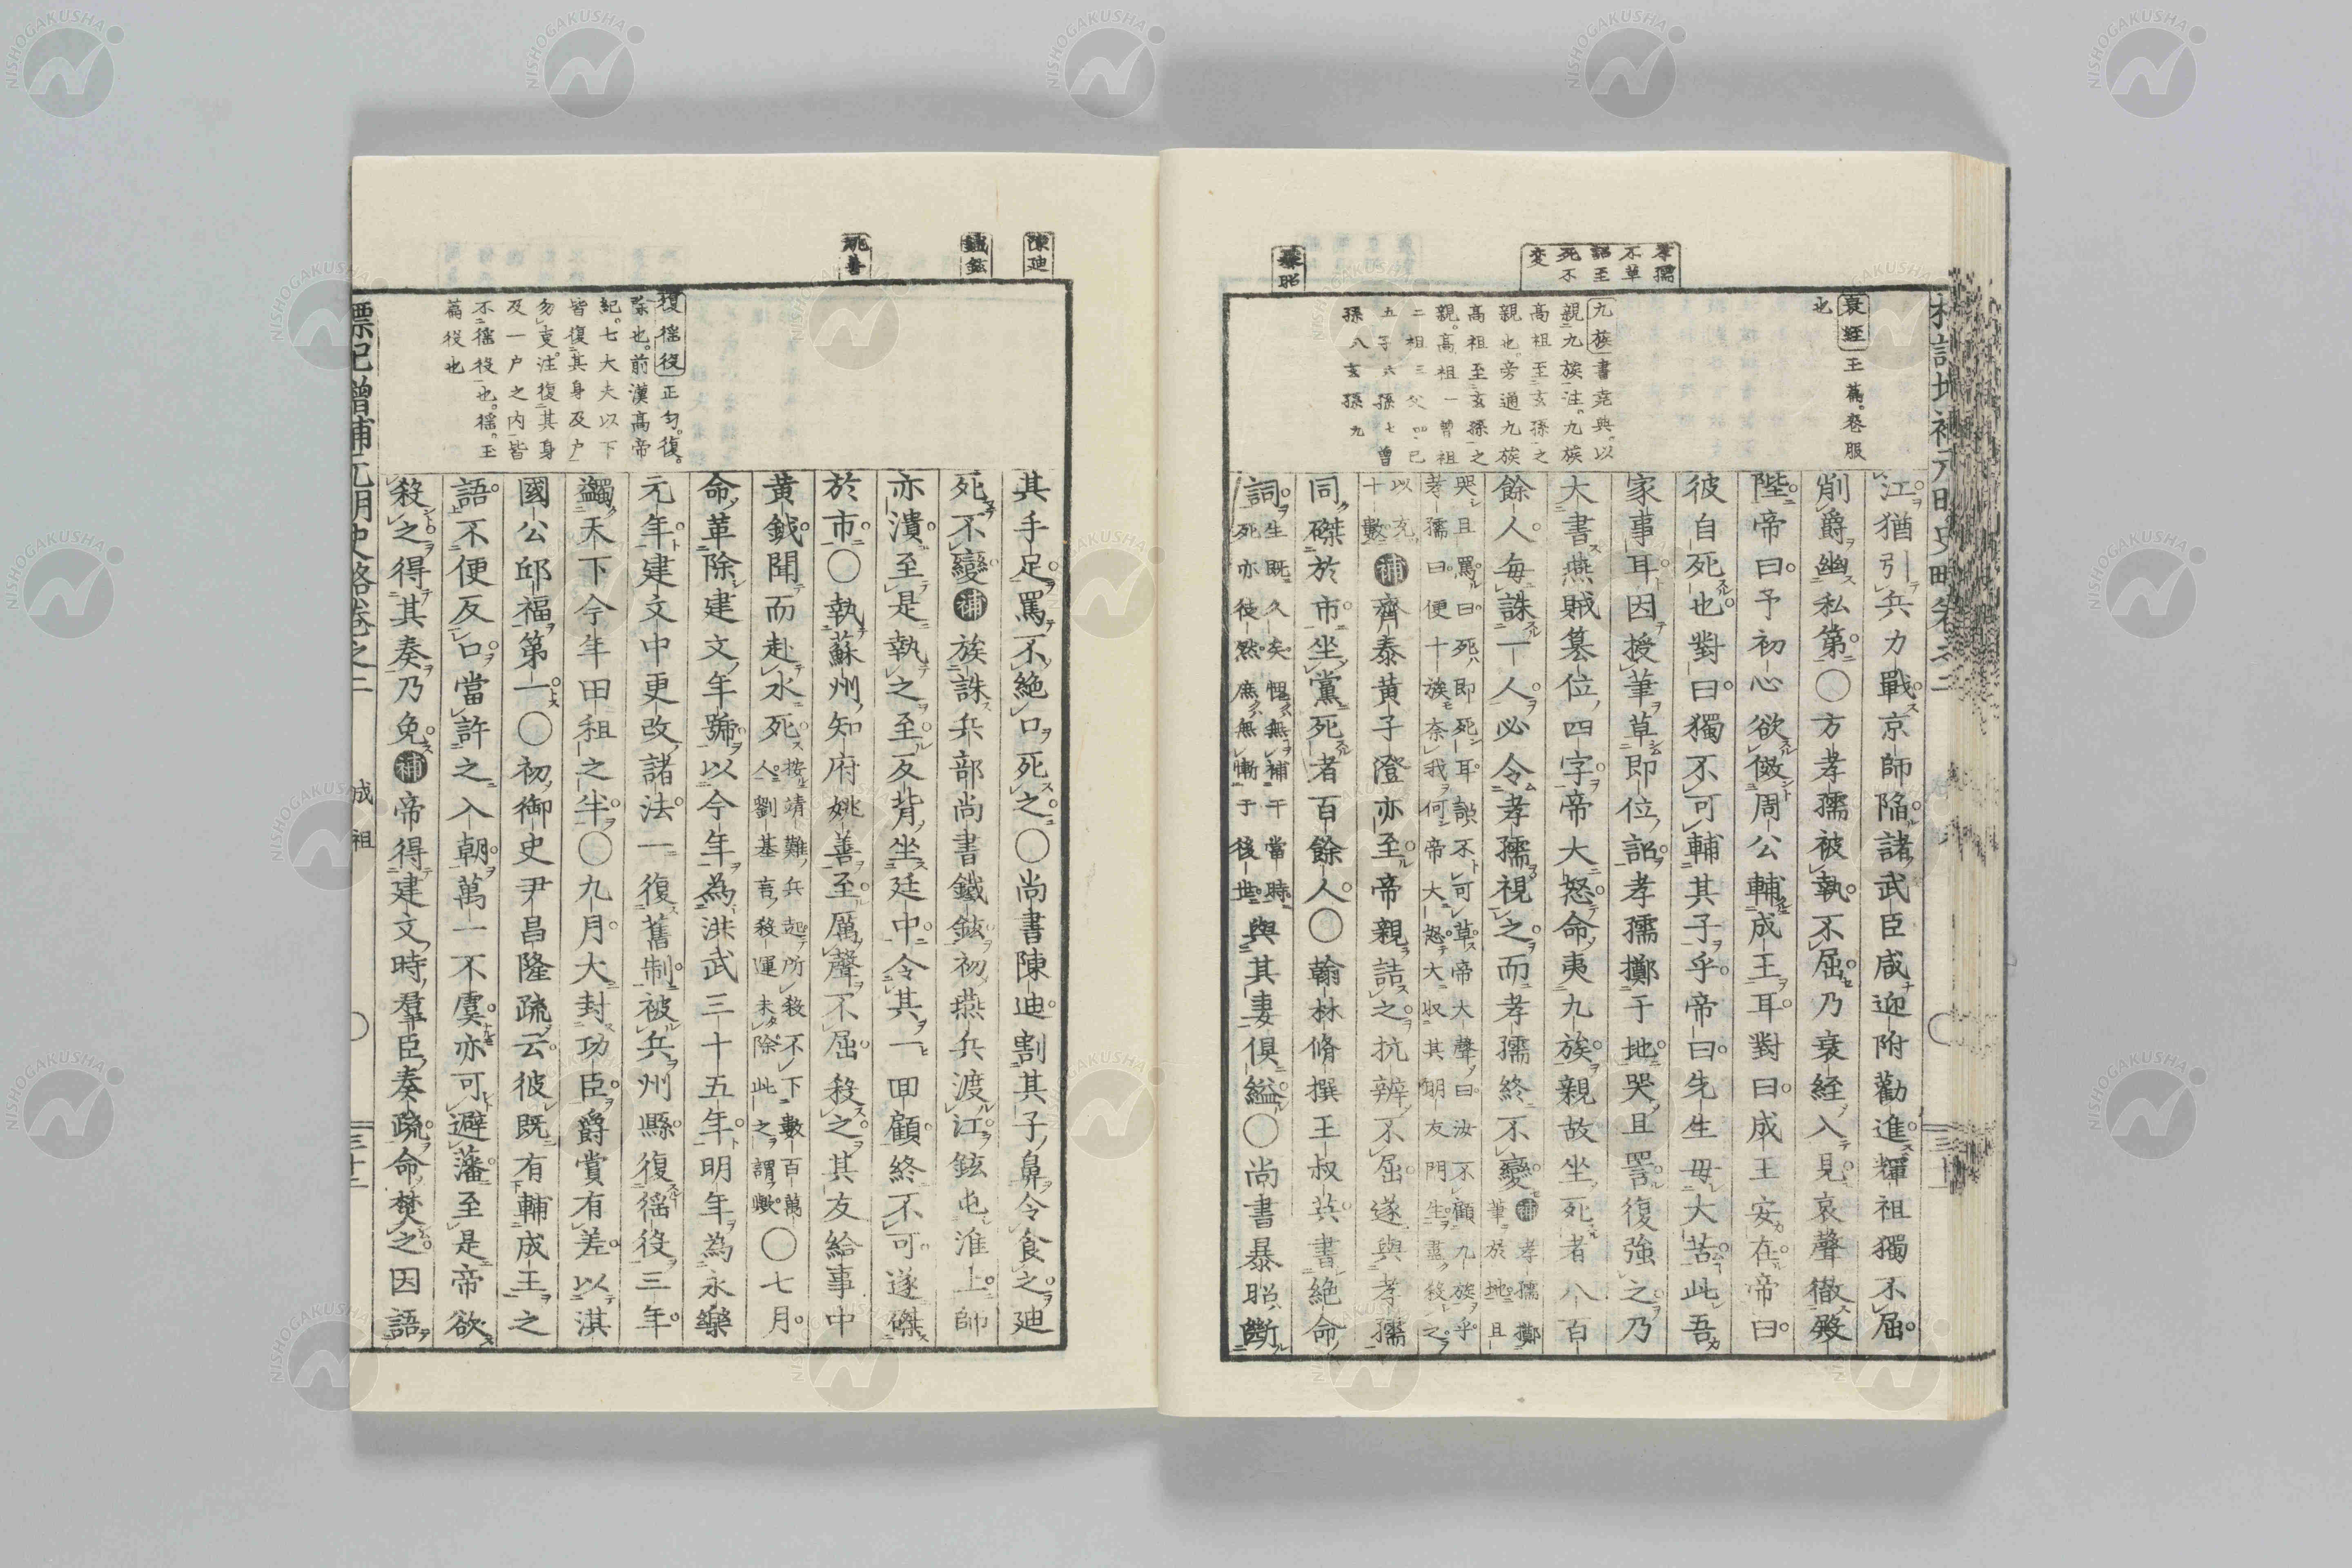 孝孺
不草
詔至
死不
変
暴昭
衰絰 王篇。喪服
也
九族 書堯典。以
親九族注。九族
高祖至玄孫之
親也。旁通九族
高祖至玄孫之
親。高祖一曾祖
二祖三父四己
五子六孫七曾
孫八玄孫九
江猶引兵力戰京師陷諸武臣咸迎附勸進輝祖獨不屈
削爵幽私第〇方孝孺被執不屈乃衰絰入見哀聲徹殿
陛帝曰予初心欲倣周公輔成王耳對曰成王安在帝曰
彼自死也對曰獨不可輔其子乎帝曰先生毋大苦此吾
家事耳因授筆草即位詔孝孺擲于地哭且詈復強之乃
大書燕賊篡位四字帝大怒命夷九族親故坐死者八百
餘人每誅一人必令孝孺視之而孝孺終不變補孝孺擲
筆於地且
哭且罵曰死即死耳詔不可草帝大聲曰汝不顧九族乎
孝孺曰便十族奈我何帝大怒大収其朋友門生盡殺之
以充
十數補齊泰黄子澄亦至帝親詰之抗辨不屈遂與孝孺
同磔於市坐黨死者百餘人〇翰林脩撰王叔英書絶命
詞生既久矣愧無補于當時
死亦徒然庶無慚于後世與其妻俱縊〇尚書暴昭斷
陳廸
鐵鉉
姚善
復徭役 正勻。復。
除也。前漢髙帝
紀。七大夫以下
皆復其身及戸
勿吏注。復其身
及一户之内皆
不徭役也。徭。王
篇役也
其手足罵不絶口死之〇尚書陳迪割其子鼻令食之廸
死不變補族誅兵部尚書鐵鉉初燕兵渡江鉉屯淮上師
亦潰至是執之至反背坐廷中令其一回顧終不可遂磔
於市〇執蘇州知府姚善至厲聲不屈殺之其友給事中
黄鉞聞而赴水死按靖難兵起所殺不下數百萬
人劉基言殺運未除此之謂歟〇七月
命革除建文年號以今年為洪武三十五年明年為永樂
元年建文中更改諸法一復舊制被兵州縣復徭役三年
蠲天下今年田租之半〇九月大封功臣爵賞有差以淇
國公邱福第一〇初御史尹昌隆疏云彼既有輔成王之
語不便反口當許之入朝萬一不虞亦可避藩至是帝欲
殺之得其奏乃免補帝得建文時羣臣奏疏命焚之因語
標記增補元明史略卷之二
成祖